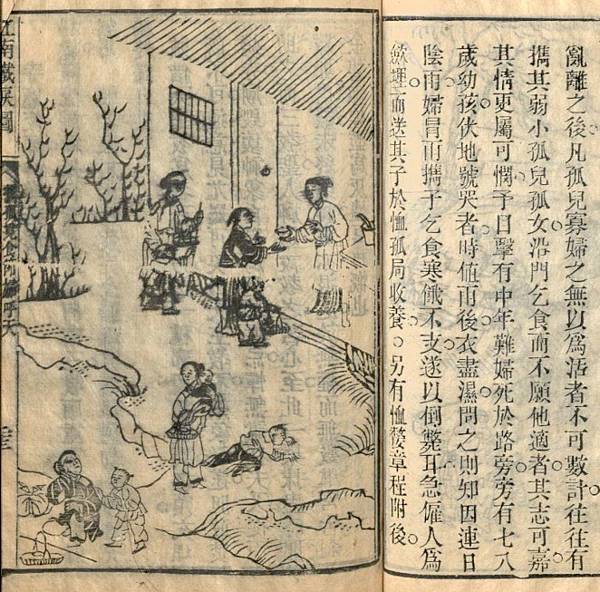 亂離之後凡孤兒寡婦之無以爲活者不可數計往往有
攜其弱小孤兒孤女沿門乞食而不願他適者其志可嘉
其情更屬可憫予目擊有中年難婦死於路旁旁有七八
歲幼孩伏地號哭者時值雨後衣盡濕問之則知因連日
陰雨婦冒雨攜子乞食寒餓不支遂以倒斃耳急僱人爲
斂埋而送其子於恤孤局收養。另有恤嫠章程附後。
江南鐵淚圖